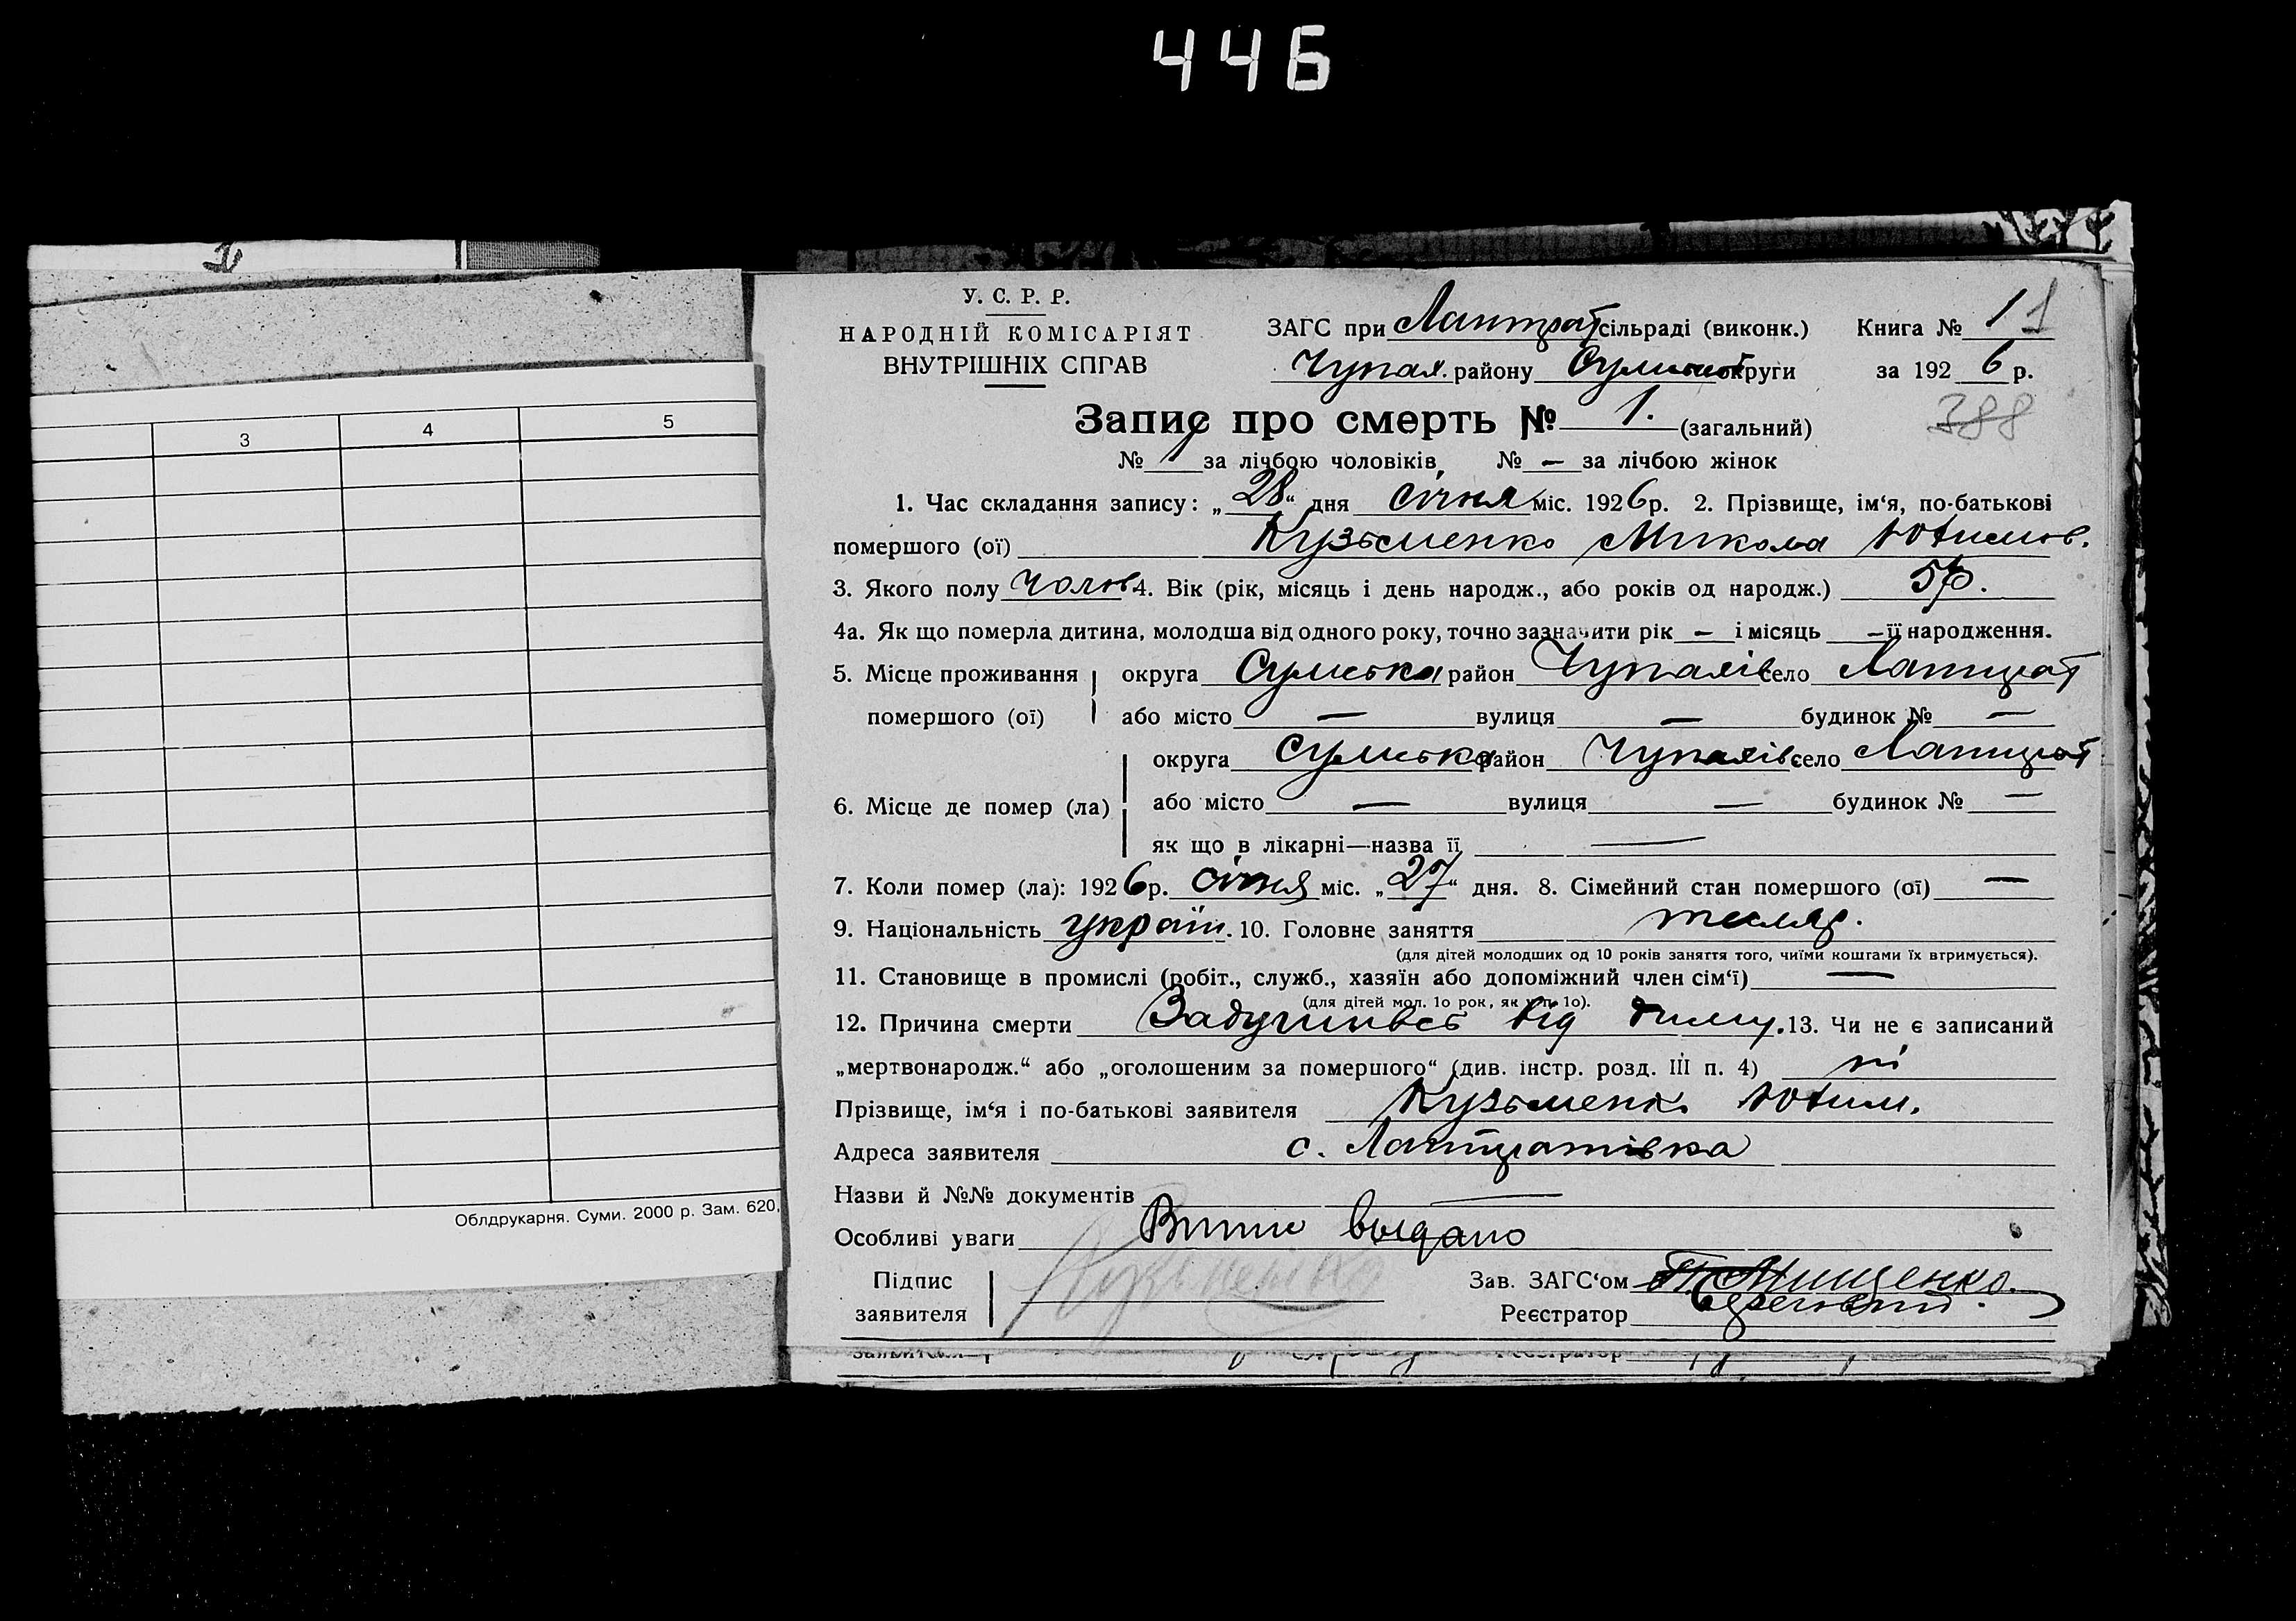 446
3 4 5
Облдрукарня. Суми. 2000 р. Зам. 620,
У. С. Р. Р.
НАРОДНІЙ КОМІСАРІЯТ
ВНУТРІШНІХ СПРАВ
ЗАГС при сільраді (виконк.) Книга № 1
Чупах. району Сумської округи за 1926 р.
388
Запис про смерть № 1. (загальний)
№ 1 за лічбою чоловіків, № — за лічбою жінок
1. Час складання запису: „28“ дня січня міс. 1926 р. 2. Прізвище, ім‘я, по-батькові
помершого (ої) Кузьменко Микола Юхимов.
3. Якого полу чолов 4. Вік (рік, місяць і день народж., або років од народж.)
4а. Як що померла дитина, молодша від одного року, точно зазначити рік — і місяць — її народження.
5. Місце проживання округа Сумська район Чупахів село
помершого (ої) або місто — вулиця — будинок № —
округа Сумська район Чупахів село
6. Місце де помер (ла) або місто — вулиця — будинок № —
як що в лікарні—назва її —
7. Коли помер (ла): 1926 р. січня міс. „27“ дня. 8. Сімейний стан помершого (ої) —
9. Національність україн. 10. Головне заняття
(для дітей молодших од 10 років заняття того, чиїми коштами їх втримується).
11. Становище в промислі (робіт., служб., хазяїн або допоміжний член сім‘ї) —
(для дітей мол. 10 рок, як у п. 10).
12. Причина смерти Задушивсь від диму. 13. Чи не є записаний
„мертвонародж.“ або „оголошеним за помершого“ (див. інстр. розд. III п. 4) ні
Прізвище, ім‘я і по-батькові заявителя Кузьменко Юхим.
Адреса заявителя с.
Назви й №№ документів —
Особливі уваги видано
Підпис Кузьменко Зав. ЗАГС‘ом Мищенко.
заявителя Реєстратор